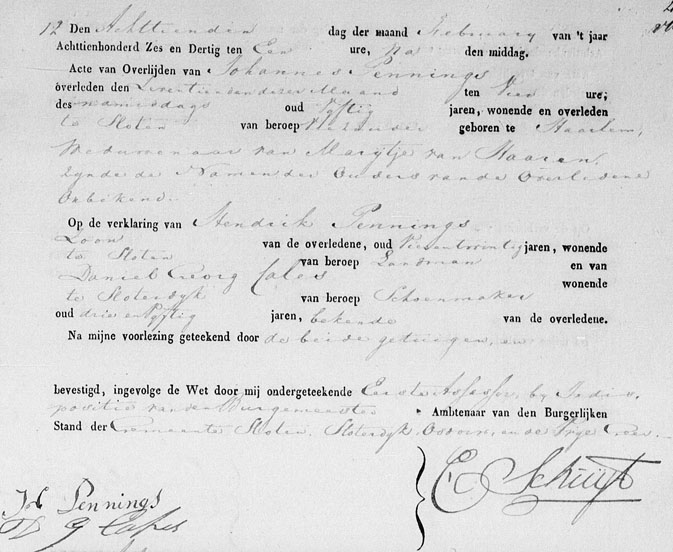 12 Den Achttienden dag der maand February van 't jaar
Achttienhonderd Zes en Dertig ten Een ure, Na den middag.
Acte van Overlijden van Johannes Pennings
overleden den dezer Maand ten Vier ure;
des namiddags oud Vyftig jaren, wonende en overleden
te Sloten van beroep geboren te Haarlem,
Weduwenaar van Marytje van Haaren,
zynde de Namen der Ouders van de Overledene
Onbekend.
Op de verklaring van Hendrik Pennings
Zoon van de overledene, oud jaren, wonende
te Sloten van beroep Landman en van
Daniel Georg wonende
te Sloterdyk van beroep Schoenmaker
oud drie en Vyftig jaren, bekende van de overledene.
Na mijne voorlezing geteekend door de beide getuigen, en
bevestigd, ingevolge de Wet door mij ondergeteekende Eerste Assessor, by Indis-
positie van den Burgemeester Ambtenaar van den Burgerlijken
Stand der Gemeente Sloten, Sloterdyk, Osdorp, en de Vrye Geer.
E Schuyt
H Pennings
D G